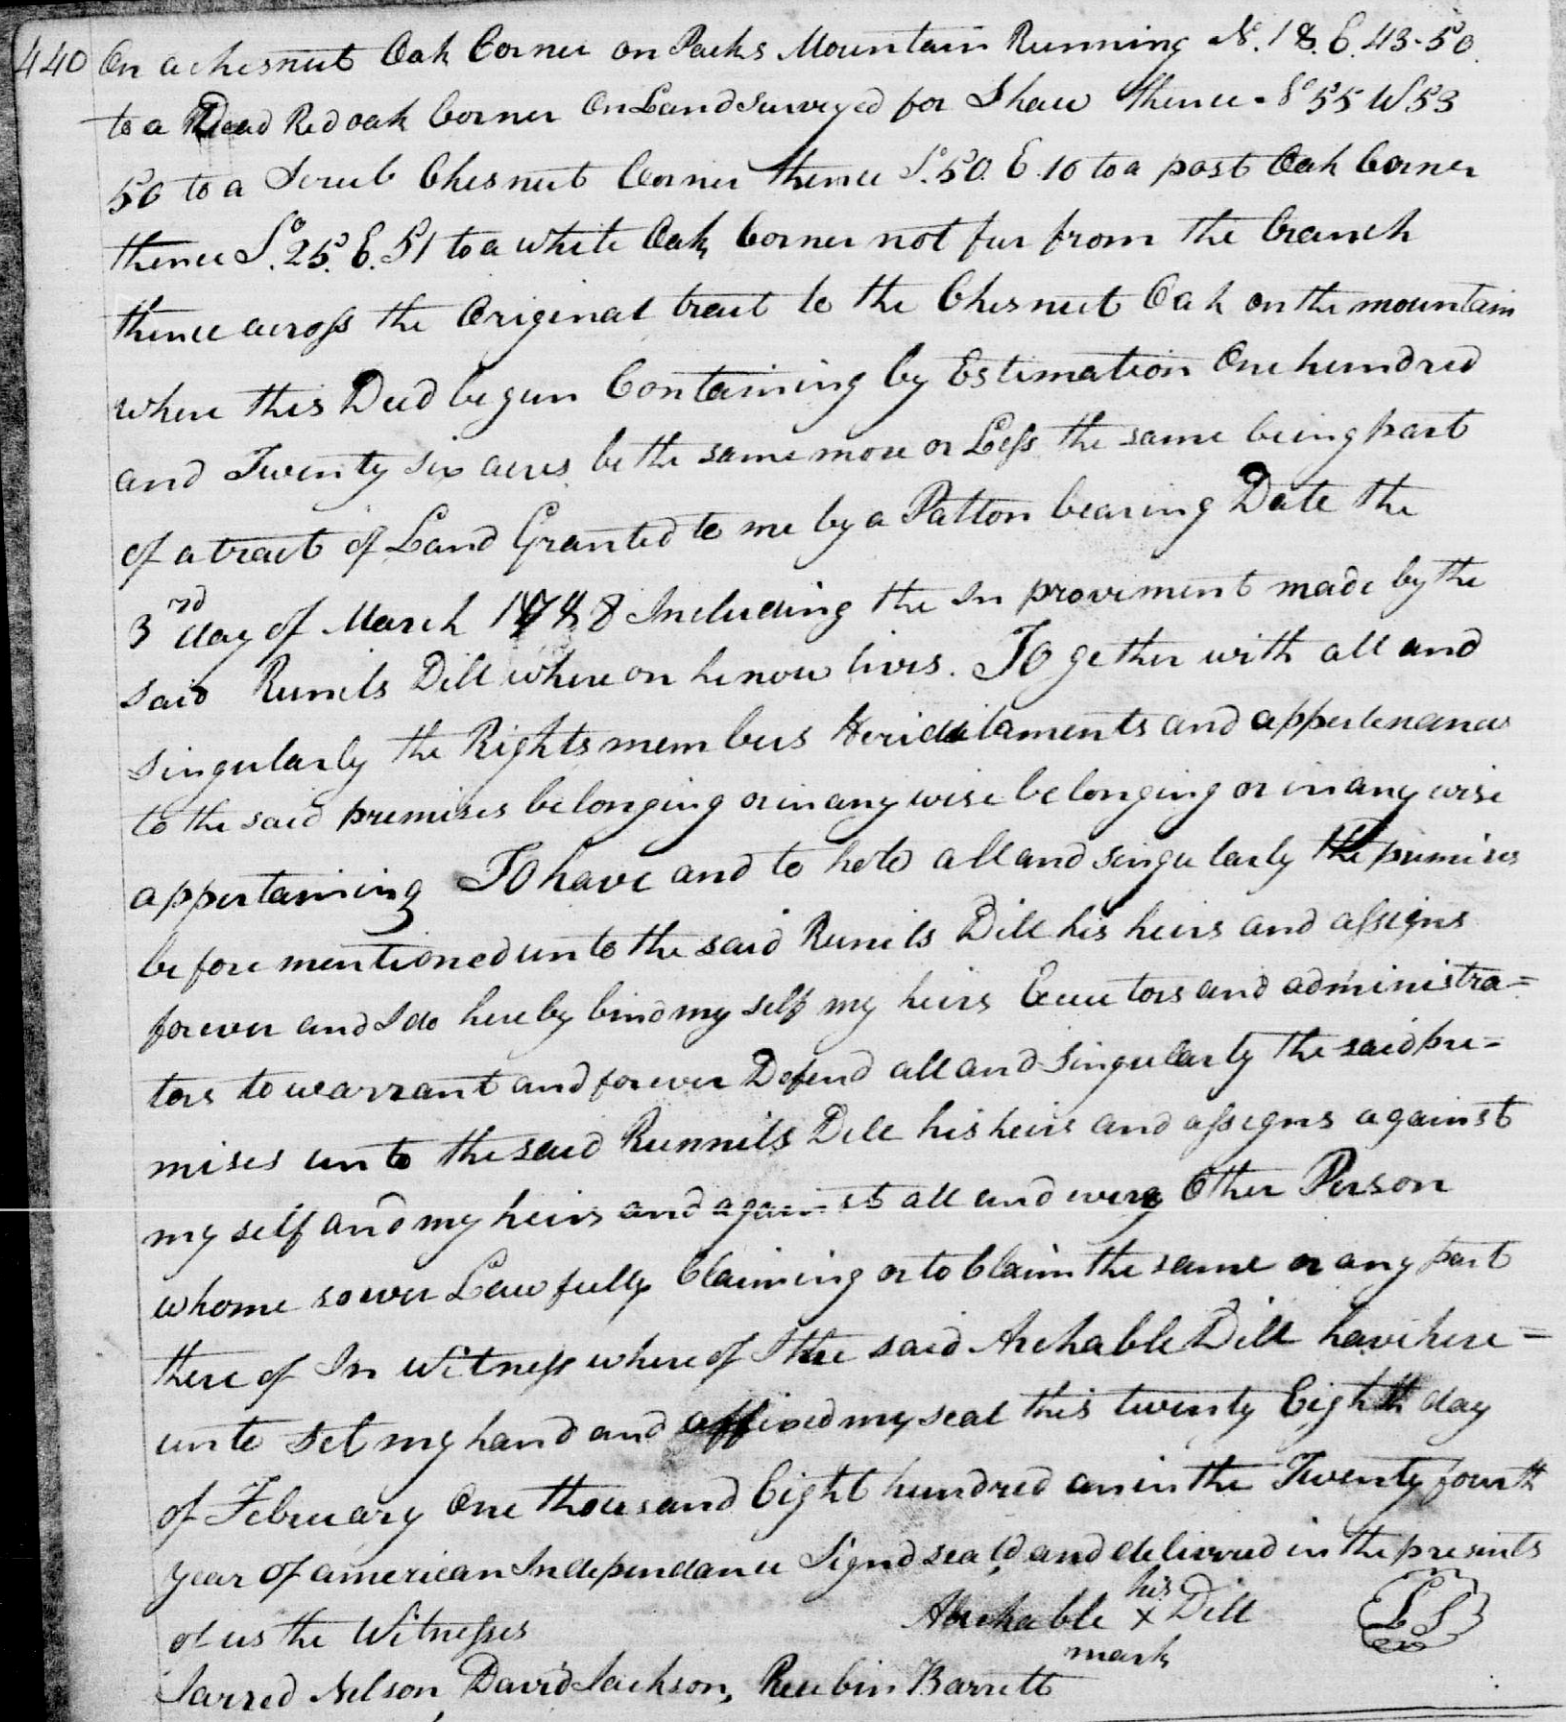 440 On a chesnut Oak Corner on Parks Mountain Running N. 18. E. 43-50.
to a Dead Red oak Corner On Land surveyed for Shaw thence So 55 W 53
50 to a Scrub Chesnut Corner thence So. 50. E. 10 to a post Oak Corner
thence So. 25. E. 51 to a white Oak Corner not fur from the Branch
thence across the Original tract to the Chesnut Oak on the mountain
where this Deed begun Containing by Estimation One hundred
and Twenty six acres be the same more or Less the same being part
of a tract of Land Granted to me by a Patton bearing Date the
3rd day of March 1788 Including the In provement made by the
said Runils Dill where on he now lives. To gether with all and
singularly the Rights members Heriditaments and appertenances
to the said premises belonging or in any wise belonging or in any wise
appertaining To have and to hold all and singularly the premises
before mentioned unto the said Runils Dill his heirs and assigns
forever and I do hereby bind my self my heirs Eecutors and administra=
tors to warrant and forever Defend all and Singularly the said pre=
mises unto the said Runnils Dill his heirs and assigns against
my self and my heirs and against all and every Other Person
whome soever Lawfully Claiming or to Claim the same or any part
there of In Witness where of I the said Archable Dill have here=
unto set my hand and affixed my seal this twenty Eighth day
of February One thousand Eight hundred an in the Twenty fourth
year of american Independance Signd seald and delivred in the presents
of us the Witnesses Archable his x mark Dill LS
Jarred Nelson, David Jackson, Reubin Barrett